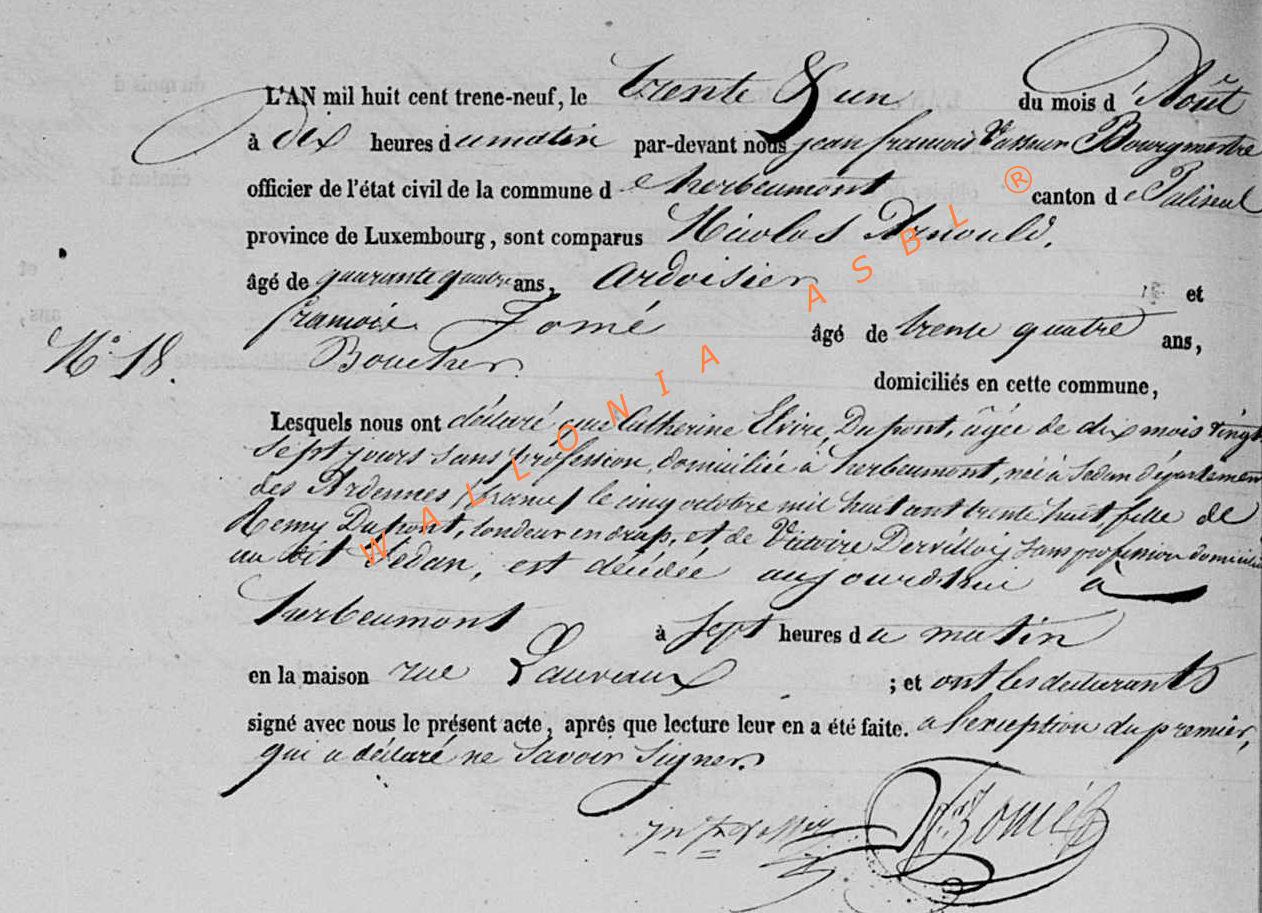 L'AN mil huit cent trene-neuf, le trente & un du mois d'Août
à dix heures du matin par-devant nous jean françois Bourgmestre
officier de l'état civil de la commune de herbeumont canton de Paliseul
province de Luxembourg, sont comparus Nicolas Arnould,
âgé de quarante quatre ans, ardoisier et
françois Zomé âgé de trente quatre ans,
N.° 18.
Boucher
domiciliés en cette commune,
Lesquels nous ont déclaré que Catherine Elvire Dupont, âgée de dix mois vingt
sept jours sans profession, domiciliée à herbeumont, née à Sedan département
des Ardennes (france) le cinq octobre mil huit cent trente huit, fille de
Remy Dupont, tondeur en drap, et de Victoire sans profession domiciliés
au dit Sedan, est décédée aujourd'hui à
herbeumont à sept heures du matin
en la maison rue Lauvaux ; et ont les declarants
signé avec nous le présent acte, après que lecture leur en a été faite. a l'exception du premier,
qui a déclaré ne Savoir Signer.
Zomé
WALLONIA ASBL ®